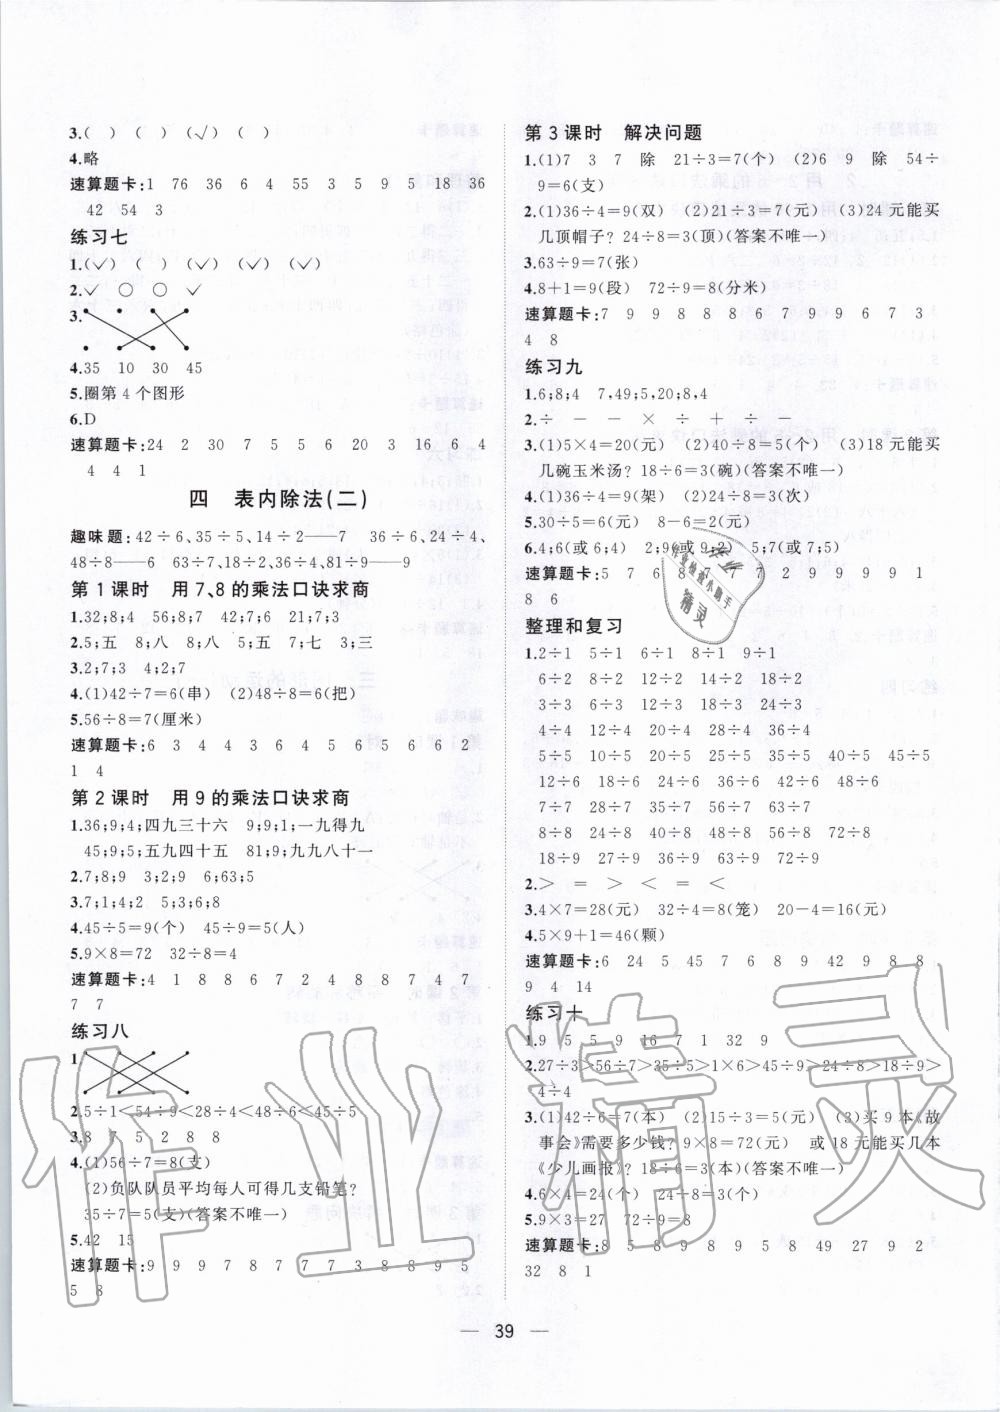 3.(　)　(　)　(✓)　(　)
4.略
速算题卡:1　76　36　6　4　55　3　5　9　5　18　36
42　54　3
练习七
1.(✓)　(✓)　(✓)　(✓)
2.✓　○　○　✓
3.
4.35　10　30　45
5.圈第4个图形
6.D
速算题卡:24　2　30　7　5　5　6　20　3　16　6　4
4　4　1
四　表内除法(二)
趣味题:42÷6、35÷5、14÷2——7　36÷6、24÷4、
48÷8——6　63÷7、18÷2、36÷4、81÷9——9
第1课时　用7、8的乘法口诀求商
1.32;8;4　56;8;7　42;7;6　21;7;3
2.5;五　8;八　8;八　5;五　7;七　3;三
3.2;7;3　4;2;8
4.(1)42÷7=6(串)　(2)48÷8=6(把)
5.56÷8=7(厘米)
速算题卡:6　3　4　4　3　6　4　5　6　5　6　6　2
1　4
第2课时　用9的乘法口诀求商
1.36;9;4;四九三十六　9;9;1;一九得九
45;9;5;五九四十五　81;9;九九八十一
2.7;8;9　3;2;9　6;63;5
3.7;1;4;2　5;3;6;8
4.45÷5=9(个)　45÷9=5(人)
5.9×8=72　32÷8=4
速算题卡:4　1　8　8　6　7　2　4　8　8　7　4　7
7　7
练习八
1.
2.5÷1<54÷9<28÷4<48÷6<45÷5
3.8　7　5　2　8　8
4.(1)56÷7=8(支)
(2)负队队员平均每人可得几支铅笔?
35÷7=5(支)(答案不唯一)
5.42　15
速算题卡:9　9　9　7　8　7　7　7　3　8　8　9　5
5　8
第3课时　解决问题
1.(1)7　3　7　除　21÷3=7(个)　(2)6　9　除　54÷
9=6(支)
2.(1)36÷4=9(双)　(2)21÷3=7(元)　(3)24元能买
几顶帽子?　24÷8=3(顶)(答案不唯一)
3.63÷9=7(张)
4.8+1=9(段)　72÷9=8(分米)
速算题卡:7　9　9　8　8　8　6　7　9　9　6　7　3
4　8
练习九
1.6;8;4　7,49;5,20;8,4
2.÷　−　−　×　÷　+　÷　−
3.(1)5×4=20(元)　(2)40÷8=5(个)　(3)18元能买
几碗玉米汤?　18÷6=3(碗)(答案不唯一)
4.(1)36÷4=9(架)　(2)24÷8=3(次)
5.30÷5=6(元)　8−6=2(元)
6.4;6(或6;4)　2;9(或9;2)　5;7(或7;5)
速算题卡:5　7　6　8　7　7　7　2　9　9　9　9　1
8　6
整理和复习
1.2÷1　5÷1　6÷1　8÷1　9÷1
6÷2　8÷2　12÷2　14÷2　18÷2
3÷3　6÷3　12÷3　18÷3　24÷3
4÷4　12÷4　20÷4　28÷4　36÷4
5÷5　10÷5　20÷5　25÷5　35÷5　40÷5　45÷5
12÷6　18÷6　24÷6　36÷6　42÷6　48÷6
7÷7　28÷7　35÷7　56÷7　63÷7
8÷8　24÷8　40÷8　48÷8　56÷8　72÷8
18÷9　27÷9　36÷9　63÷9　72÷9
2.>　=　>　<　=　<
3.4×7=28(元)　32÷4=8(笼)　20−4=16(元)
4.5×9+1=46(颗)
速算题卡:6　24　5　45　7　6　8　9　42　9　8　8
9　4　14
练习十
1.9　5　5　9　16　7　1　32　9
2.27÷3>56÷7>35÷5>1×6>45÷9>24÷8>18÷9>
4÷4
3.(1)42÷6=7(本)　(2)15÷3=5(元)　(3)买9本《故
事会》需要多少钱?　9×8=72(元)　或18元能买几本
《少儿画报》?　18÷6=3(本)(答案不唯一)
4.6×4=24(个)　24÷8=3(个)
5.9×3=27　72÷9=8
速算题卡:8　5　8　9　5　8　49　27　9　2
32　8　1
39
作业精灵
作业
作业检查小助手
精灵